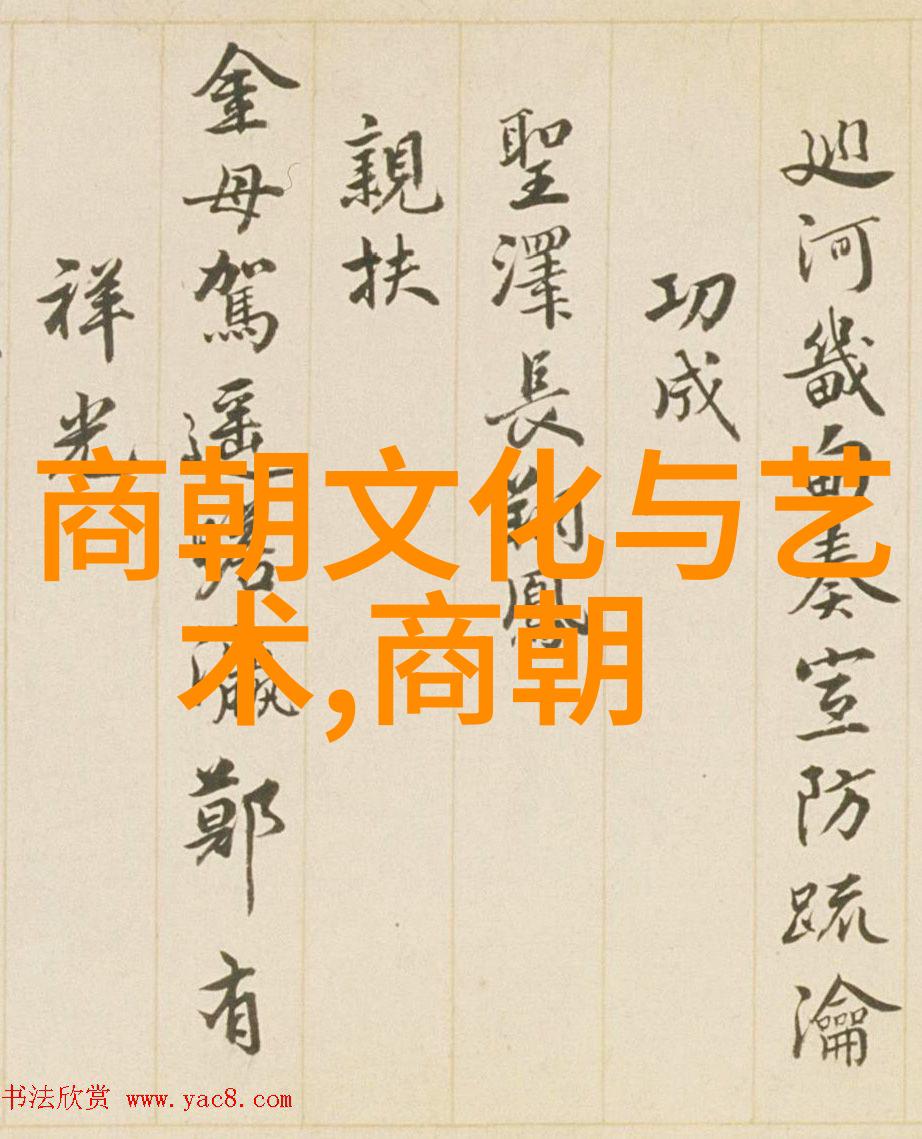 廵河畿甸奏宣防疏瀹
功成
聖澤長翔鳳
親扶
金母駕遥瀛鄭有
祥光
商朝文化与艺
术,商朝
书法欣赏 www.yac8.com